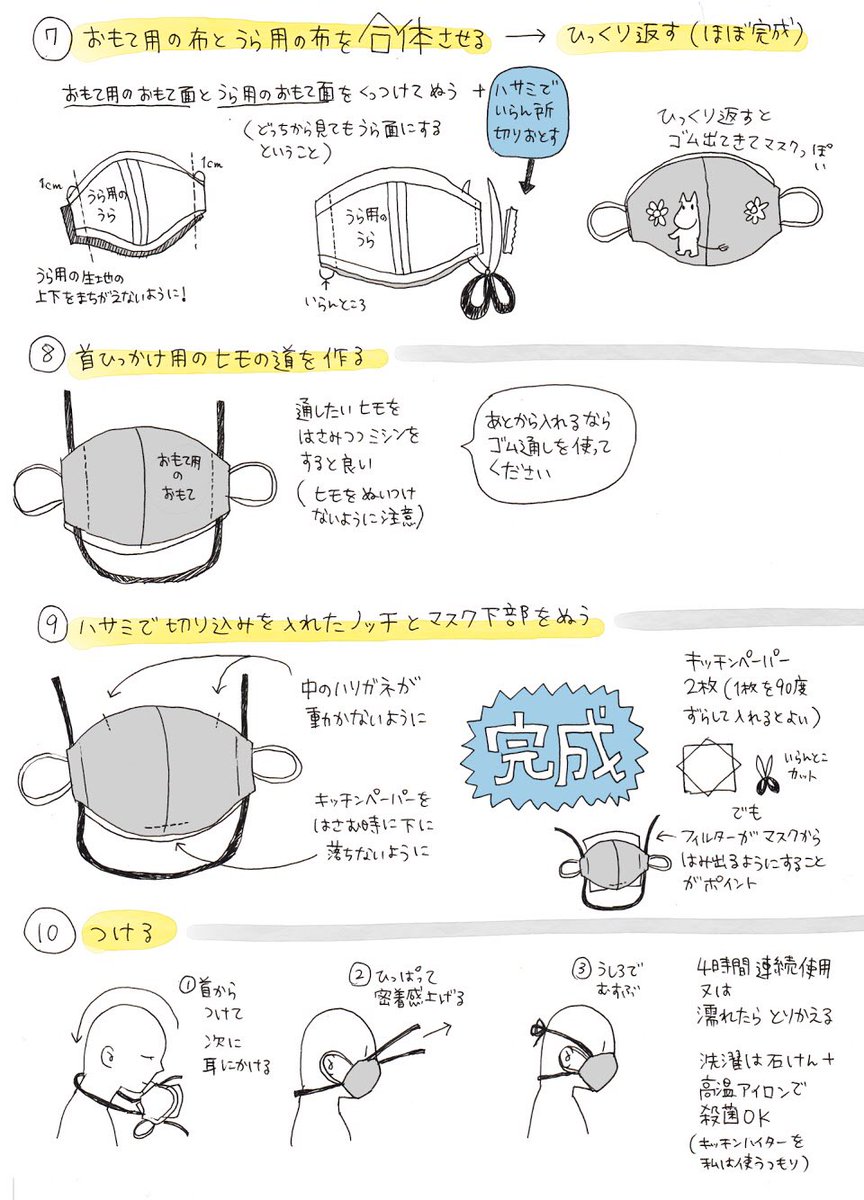 ⑦ おもて用の布とうら用の布を合体させる → ひっくり返す(ほぼ完成)
おもて用のおもて面とうら用のおもて面をくっつけてぬう +
ハサミで
いらん所
切りおとす
(どっちから見てもうら面にする
ということ)
1cm
1cm
うら用の
うら
うら用の生地の
上下をまちがえないように!
うら用の
うら
いらんところ
ひっくり返すと
ゴム出てきてマスクっぽい
⑧ 首ひっかけ用のヒモの道を作る
おもて用
の
おもて
通したいヒモを
はさみつつミシンを
すると良い
(ヒモをぬいつけ
ないように注意)
あとから入れるなら
ゴム通しを使って
ください
⑨ ハサミで切り込みを入れたノッチとマスク下部をぬう
中のハリガネが
動かないように
キッチンペーパーを
はさむ時に下に
落ちないように
完成
キッチンペーパー
2枚(1枚を90度
ずらして入れるとよい)
いらんとこ
カット
でも
フィルターがマスクから
はみ出るようにすること
がポイント
⑩ つける
①首から
つけて
次に
耳にかける
②ひっぱって
密着感上げる
③うしろで
むすぶ
4時間連続使用
又は
濡れたらとりかえる
洗濯は石けん+
高温アイロンで
殺菌OK
(キッチンハイターを
私は使うつもり)